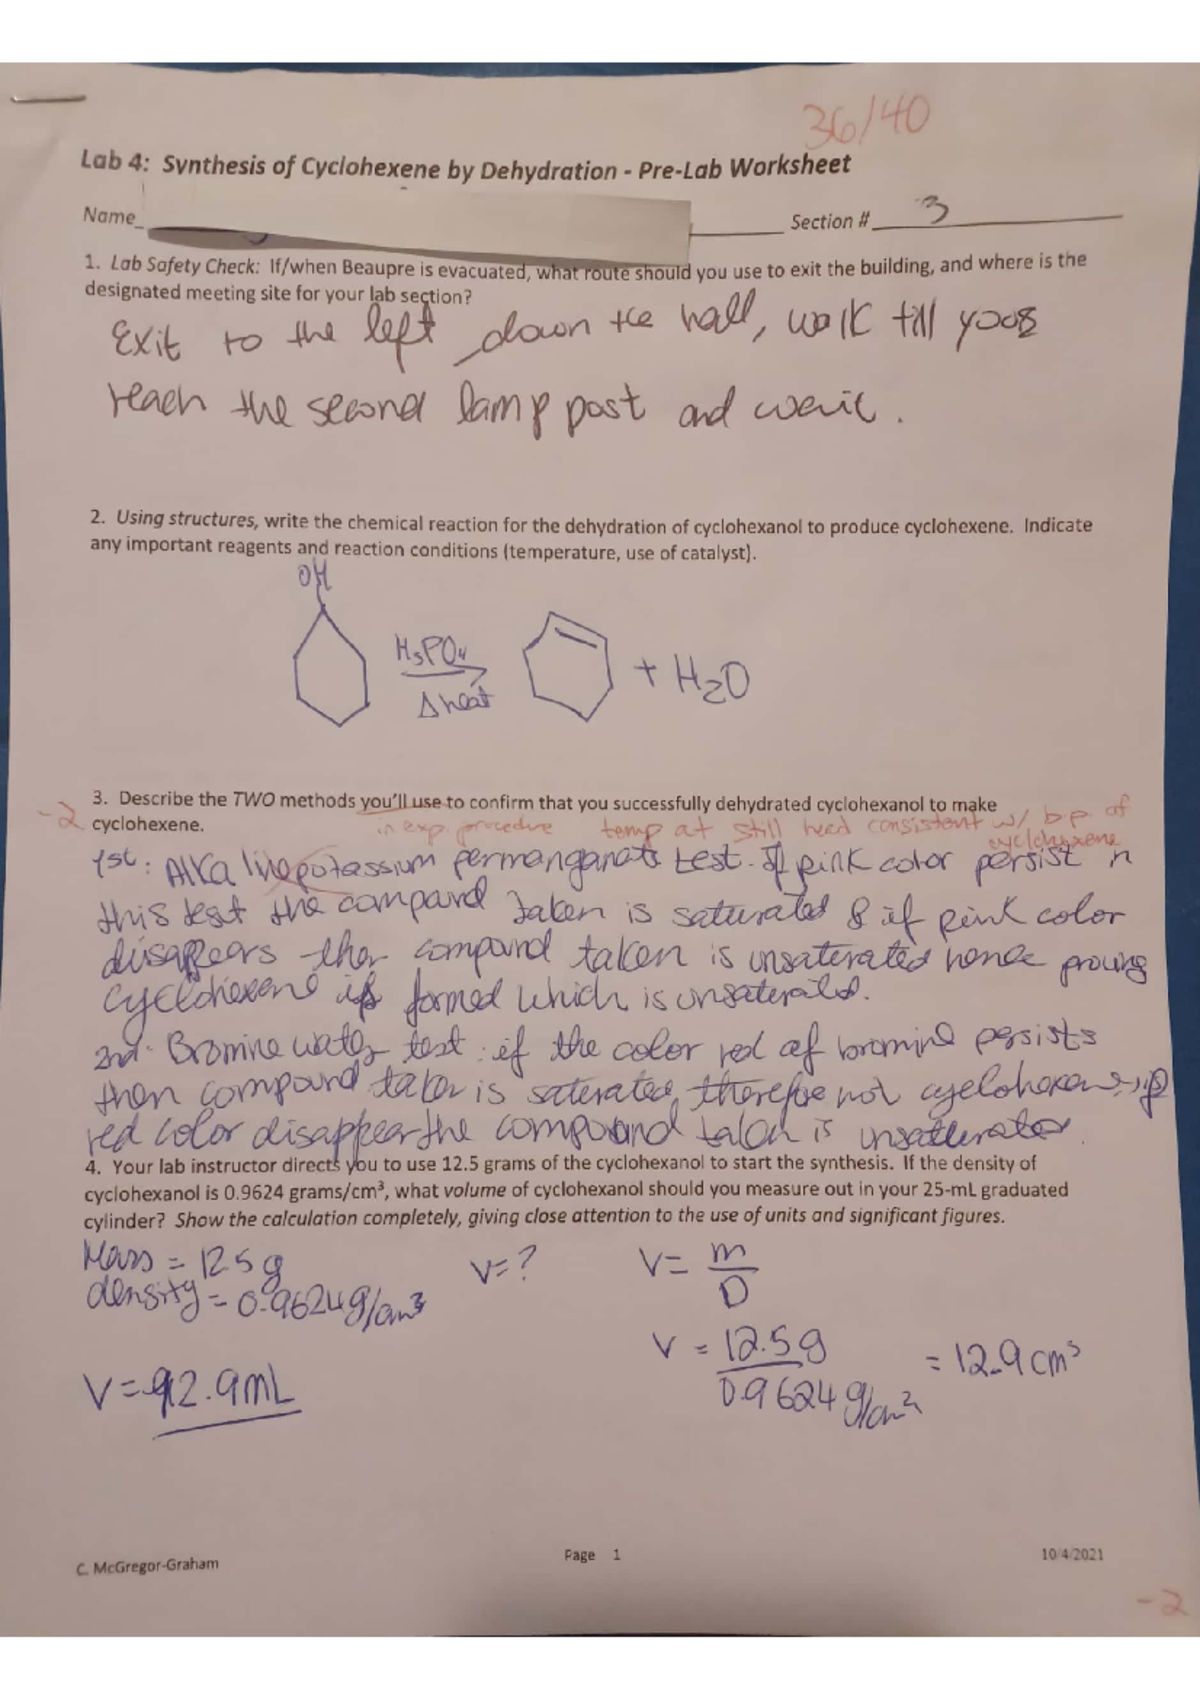 36/40
Lab 4: Synthesis of Cyclohexene by Dehydration - Pre-Lab Worksheet
Name_ Section # 3
1. Lab Safety Check: If/when Beaupre is evacuated, what route should you use to exit the building, and where is the
designated meeting site for your lab section?
Exit to the left down the hall, walk till
reach the second lamp post and
2. Using structures, write the chemical reaction for the dehydration of cyclohexanol to produce cyclohexene. Indicate
any important reagents and reaction conditions (temperature, use of catalyst).
OH
H₃PO₄
Δ heat
+ H₂O
3. Describe the TWO methods you'll use to confirm that you successfully dehydrated cyclohexanol to make
-2 cyclohexene.
in exp. procedure temp at still head consistent w/ bp of
cyclohexene
1st: Alkaline potassium permanganate test. If pink color persist n
this test the compound taken is saturated & if pink color
disappears then compound taken is unsaturated hence proving
cyclohexene is formed which is unsaturated.
2nd. Bromine water test: if the color red of bromine persists
then compound taken is saturated, therefore not cyclohexene, if
red color disappear the compound taken is unsaturated.
4. Your lab instructor directs you to use 12.5 grams of the cyclohexanol to start the synthesis. If the density of
cyclohexanol is 0.9624 grams/cm³, what volume of cyclohexanol should you measure out in your 25-mL graduated
cylinder? Show the calculation completely, giving close attention to the use of units and significant figures.
Mass = 12.5g V=? V= m
density = 0.9624g/cm³ D
V = 12.5g = 12.9 cm³
V = 12.9mL 0.9624 g/cm³
C. McGregor-Graham Page 1 10/4/2021
-2